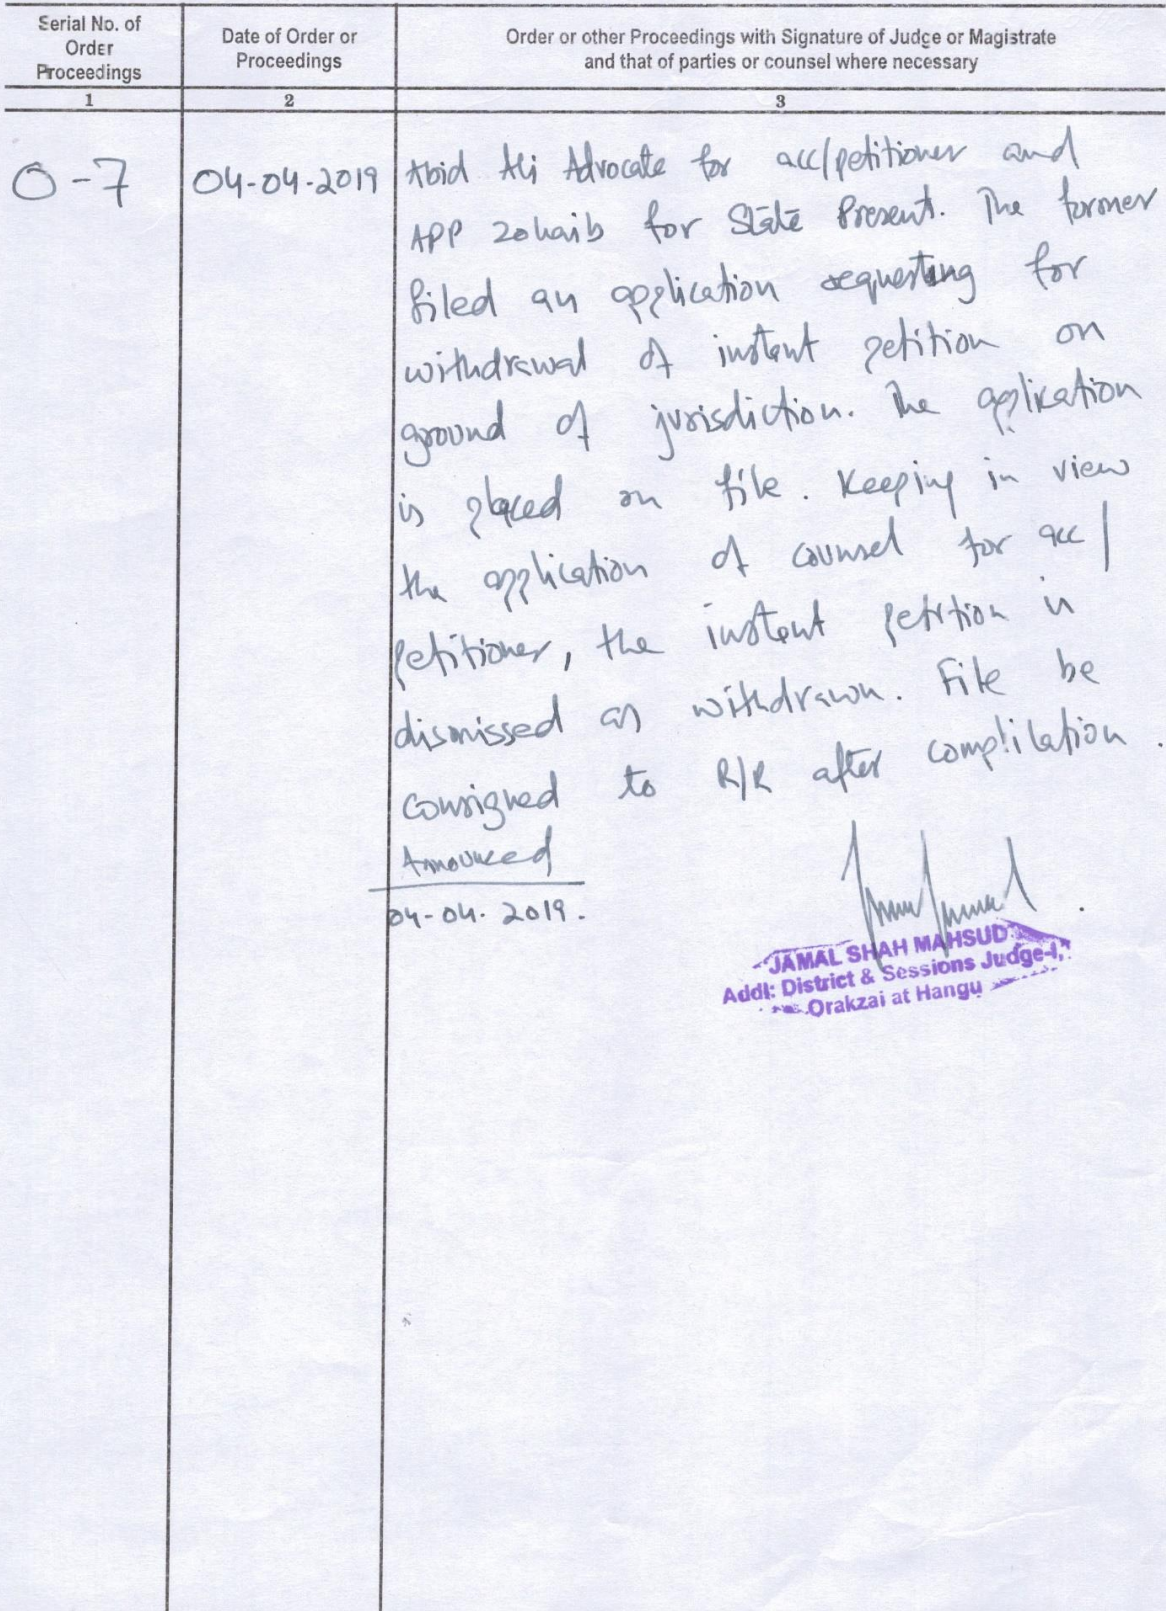 Serial No. of
Order
Proceedings
Date of Order or
Proceedings
Order or other Proceedings with Signature of Judge or Magistrate
and that of parties or counsel where necessary
1
2
3
O-7
04-04-2019
Abid Ali Advocate for acc/petitioner and
APP Zohaib for State Present. The former
filed an application requesting for
withdrawal of instant petition on
ground of jurisdiction. The application
is placed on file. Keeping in view
the application of counsel for acc/
petitioner, the instant petition is
dismissed as withdrawn. File be
consigned to R/R after complilation.
Announced
04-04. 2019.
JAMAL SHAH MAHSUD
Addl: District & Sessions Judge-I,
Orakzai at Hangu